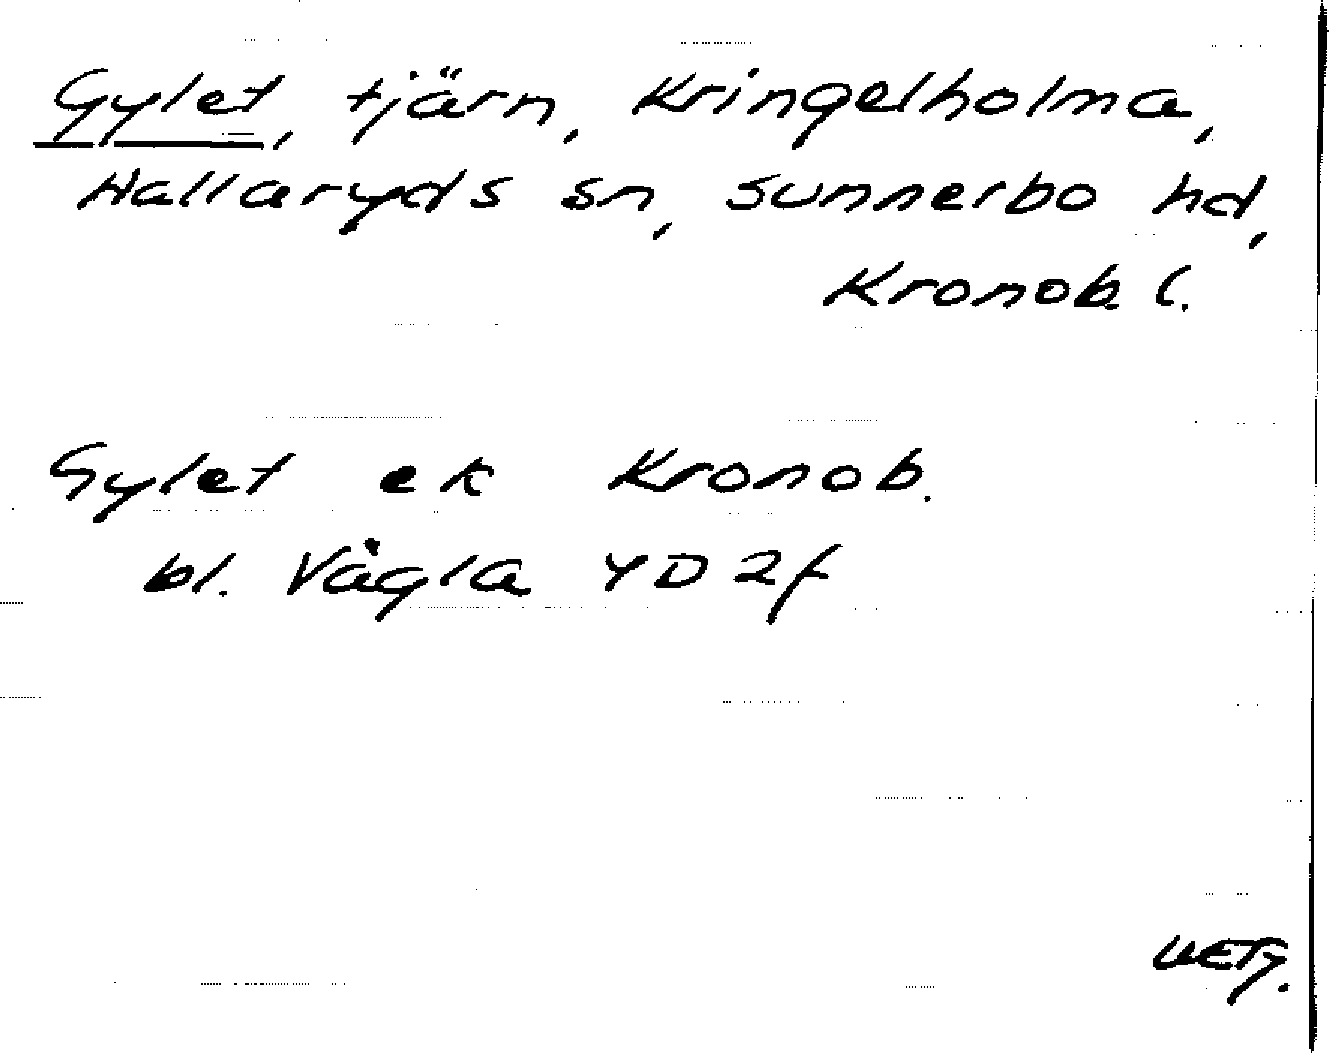 Gylet, tjärn, Kringelholma,
Hallaryds sn, Sunnerbo hd,
Kronob l.
Gylet ek Kronob.
bl. Vägla 4D2f